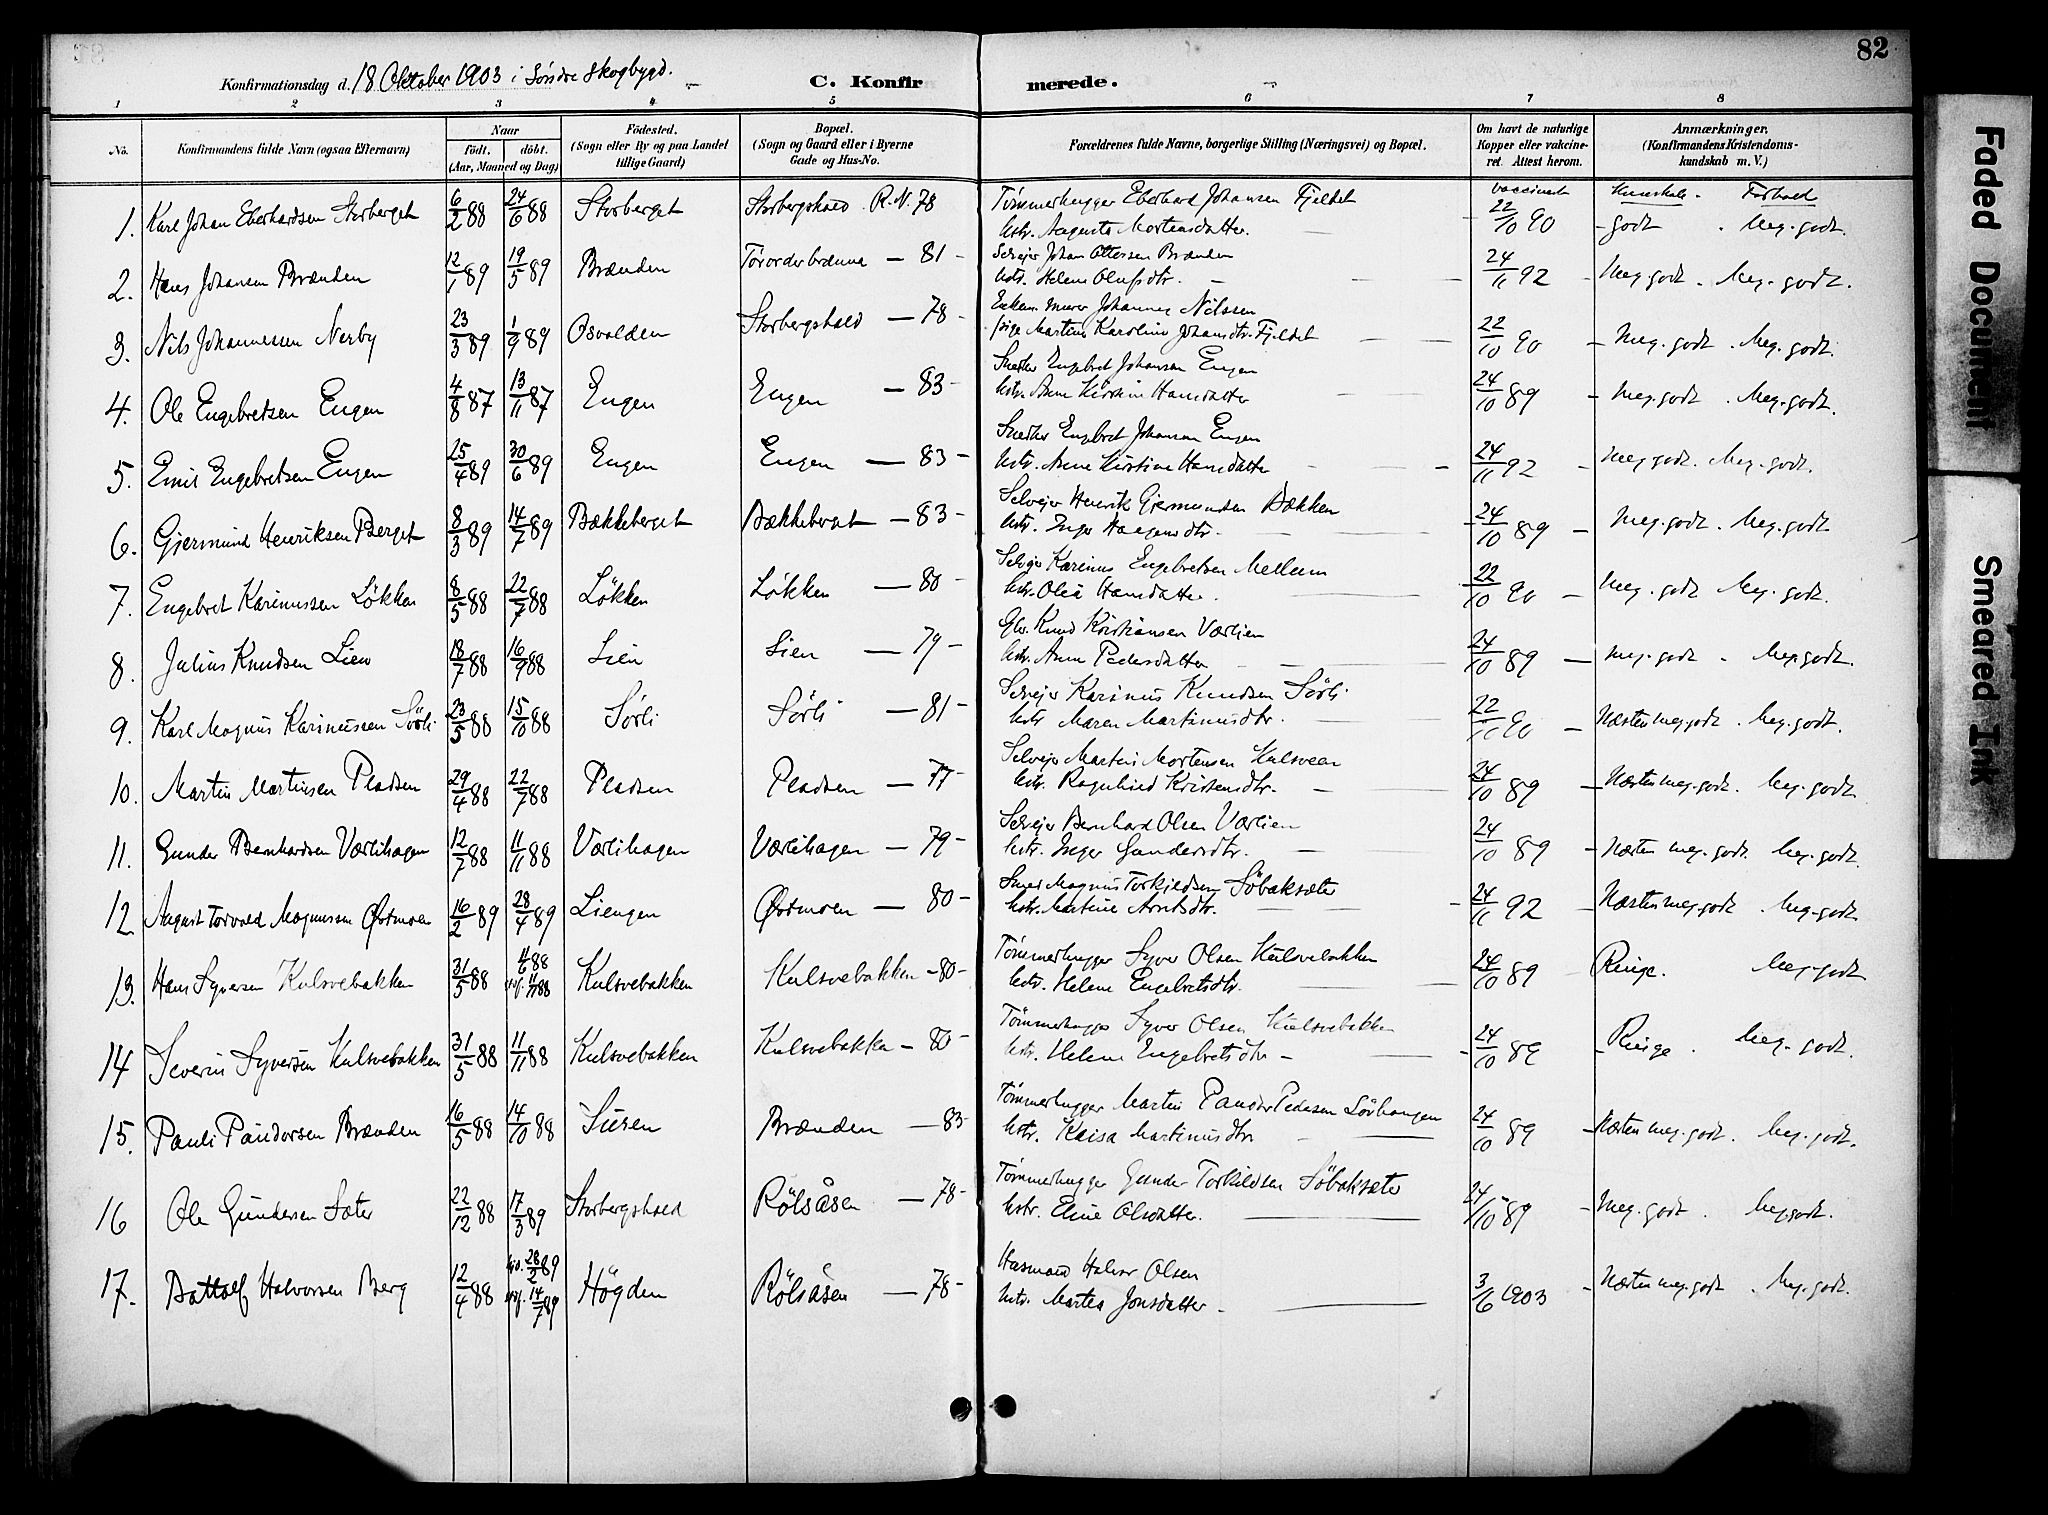 82
Konfirmationsdag d. 18 Oktober 1903 i Søndre Skogbygd.
C. Konfirmerede.
1 2 3 4 5 6 7 8
No.
Konfirmandens fulde Navn (ogsaa Efternavn)
Naar
födt. döbt.
(Aar, Maaned og Dag)
Födested.
(Sogn eller By og paa Landet
tillige Gaard)
Bopæl.
(Sogn og Gaard eller i Byerne
Gade og Hus-No.
Forældrenes fulde Navne, borgerlige Stilling (Næringsvei) og Bopæl.
Om havt de naturlige
Kopper eller vakcine-
ret. Attest herom.
Anmærkninger.
(Konfirmandens Kristendoms-
kundskab m. V.)
vaccineret Kunskab. Forhold
1. Karl Johan Eberhardsen Storberget 6/2 88 24/6 88 Storberget Storbergshold R.N. 78 Tømmerhugger Eberhard Johansen Fjeldet
hstr. Augusta Mortensdatter. 22/10 90 - godt . Meg. godt.
2. Hans Johansen Brænden 12/1 89 19/5 89 Brænden — 81 - Selvejer Johan Ottersen Brænden
hstr. Helene Olufsdtr. 24/11 92 - Meg. godt . Meg. godt.
3. Nils Johannessen Nerby 23/3 89 1/9 89 Osvolden Storbergshold — 78 - Enkem. murer Johannes Nilssen
pige Martine Karoline Johansdtr. Fjeldet 22/10 90 - Meg. godt . Meg. godt.
4. Ole Engebretsen Engen 4/8 87 13/11 87 Engen Engen — 83 - Snedker Engebret Johansen Engen
hstr. Anne Kirstine Hansdatter 24/10 89 - Meg. godt . Meg. godt.
5. Emil Engebretsen Engen 25/4 89 30/6 89 Engen Engen — 83 - Snedker Engebret Johansen Engen
hstr. Anne Kirstine Hansdatter 24/11 92 - Meg godt. Meg. godt.
6. Gjermund Henriksen Berget 8/3 89 14/7 89 Bækkeberget Bækkeberget — 83 - Selvejer Henrik Gjermundsen Bækken
hstr. Inger Haagensdtr. 24/10 89 - Meg. godt . Meg. godt.
7. Engebret Karinussen Løkken 8/5 88 22/7 88 Løkken Løkken — 80 - Selvejer Karinus Engebretsen Mellem
hstr. Olea Hansdatter. 22/10 90 - Meg. godt Meg. godt.
8. Julius Knudsen Lien 18/7 88 16/9 88 Lien Lien — 79 - Knud Kristiansen Værlien
hstr. Anne Pedersdatter 24/10 89 - Meg. godt . Meg. godt.
9. Karl Magnus Karinussen Sörli 23/5 88 15/10 88 Sörli Sörli — 81 - Selvejer Karinus Knudsen Sörli
hstr Maren Martinusdtr. 22/10 90 - Næsten meg. godt . Meg. godt.
10. Martin Martinsen Pladsen 29/4 88 22/7 88 Pladsen Pladsen — 77 - Selvejer Martin Mortensen Kulsveen
hstr. Ragnhild Kristensdtr. 24/10 89 - Næsten meg. godt. Meg. godt.
11. Gunder Bernhardsen Værlihagen 12/7 88 11/11 88 Værlihagen Værlihagen — 79 - Selvejer Bernhard Olsen Værlien
hstr. Inger Gundersdtr. 24/10 89 - Næsten meg. godt. Meg. godt.
12. August Torvald Magnussen Østmoen 16/2 89 28/4 89 Liengen Østmoen — 80 - Smed Magnus Torkildsen Söbaksæter
hstr. Martine Arntsdtr. 24/11 92 - Næsten meg. godt . Meg. godt.
13. Hans Syversen Kulsvebakken 31/5 88 4/6 88 Kulsvebakken Kulsvebakken - 80 - Tømmerhugger Syver Olsen Kulsvebakken
hstr. Helene Engebretsdtr. 24/10 89 - Ringe. Meg. godt
14 Severin Syversen Kulsvebakken 31/5 88 11/11 88 Kulsvebakken Kulsvebakken - 80 - Tømmerhugger Syver Olsen Kulsvebakken
hstr. Helene Engebretsdtr - 24/10 89 - Ringe . Meg. godt.
15. Pauli Pandorsen Brænden 16/5 88 14/10 88 Brænden — 83 - Tømmerhugger Martin Pandor Pedersen Lövhaugen
hstr. Kaisa Martinusdtr 24/10 89 - Næsten meg. godt. Meg. godt.
16 Ole Gundersen Sæter 22/12 88 17/3 89 Storbergshold Rölsåsen — 78 - Tømmerhugger Gunder Torkildsen Söbaksæter
hstr. Eline Olsdatter. 24/10 89 - Meg. godt . Meg. godt.
17. Battolf Halvorsen Berg 12/4 88 28/2 89 14/7 89 Högden Rölsåsen — 78 - Husmand Halvor Olsen
hstr. Martea Jonsdatter 3/6 1903 - Næsten meg. godt . Meg. godt.
Faded Document
Smeared Ink